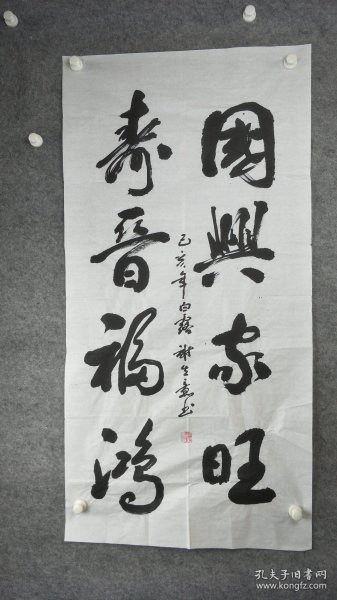 國興家旺
壽晉福鴻
己亥年白露 謝
孔夫子旧书网
www.kongfz.com